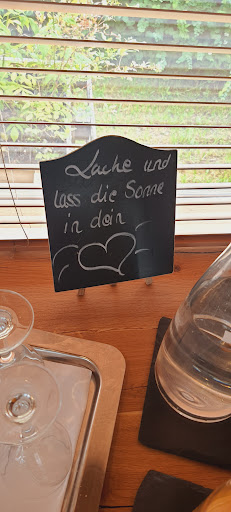 Lache und
lass die Sonne
in dein